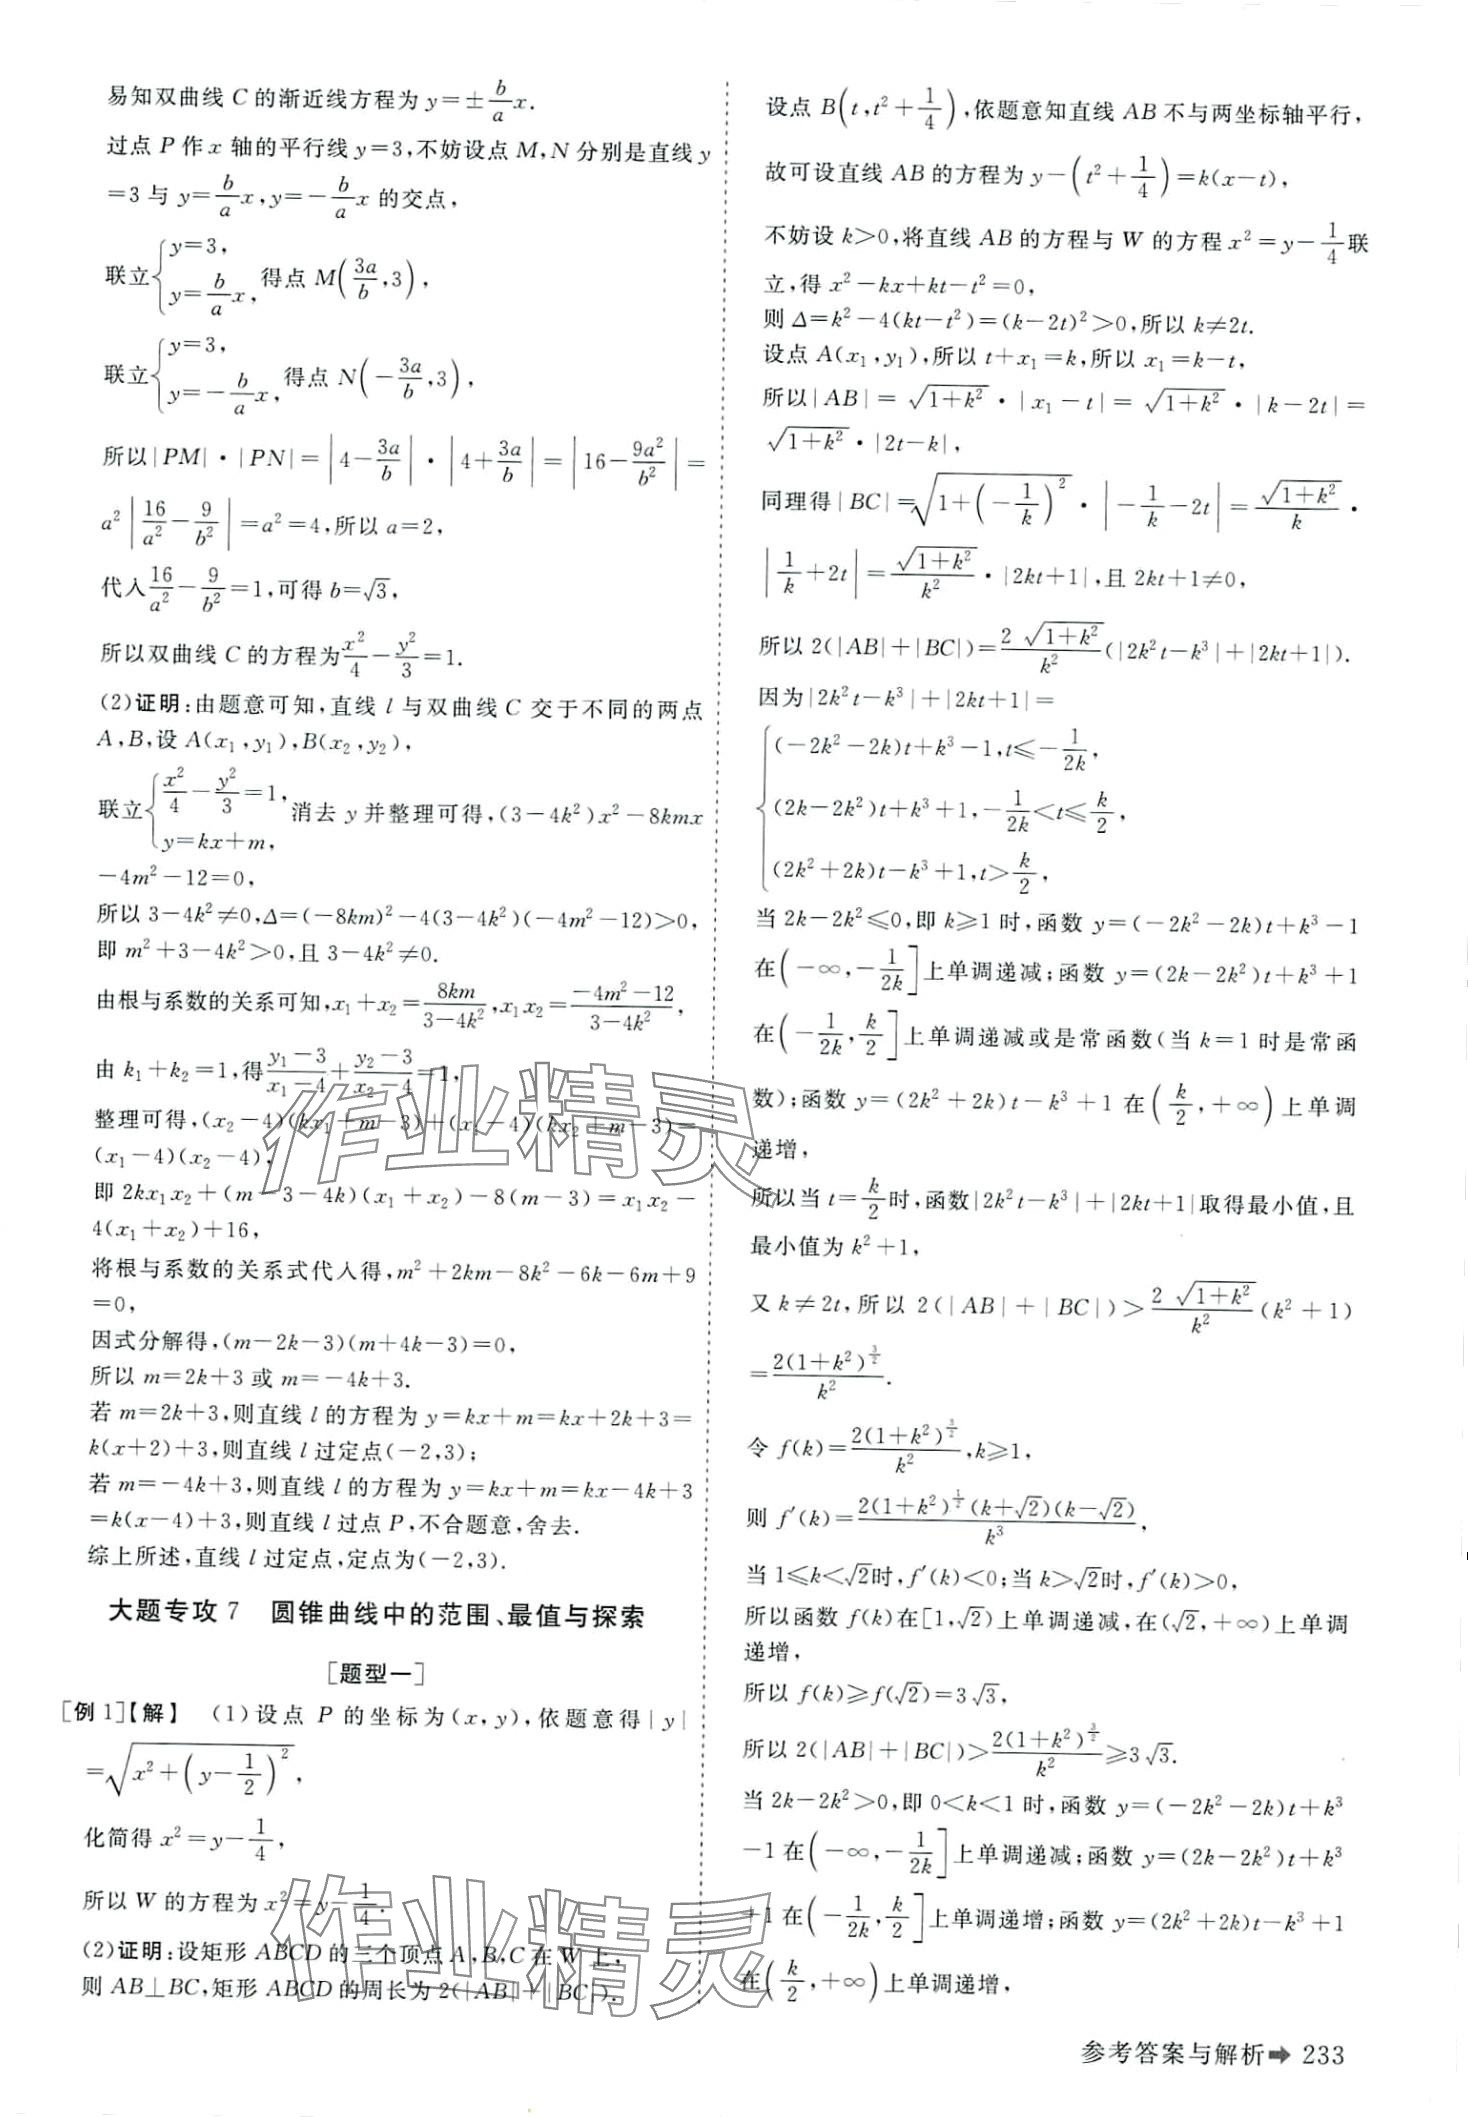 易知双曲线 C 的渐近线方程为 y=±\frac{b}{a}x.
过点 P 作 x 轴的平行线 y=3,不妨设点 M,N 分别是直线 y
=3 与 y=\frac{b}{a}x,y=-\frac{b}{a}x 的交点,
联立{y=3, y=\frac{b}{a}x, 得点 M(\frac{3a}{b},3),
联立{y=3, y=-\frac{b}{a}x, 得点 N(-\frac{3a}{b},3),
所以|PM|·|PN|=|4-\frac{3a}{b}|·|4+\frac{3a}{b}|=|16-\frac{9a^2}{b^2}|=
a^2|\frac{16}{a^2}-\frac{9}{b^2}|=a^2=4,所以 a=2,
代入\frac{16}{a^2}-\frac{9}{b^2}=1,可得 b=√3,
所以双曲线 C 的方程为\frac{x^2}{4}-\frac{y^2}{3}=1.
(2)证明:由题意可知,直线 l 与双曲线 C 交于不同的两点
A,B,设 A(x_1,y_1),B(x_2,y_2),
联立{\frac{x^2}{4}-\frac{y^2}{3}=1, y=kx+m, 消去 y 并整理可得,(3-4k^2)x^2-8kmx
-4m^2-12=0,
所以 3-4k^2≠0,Δ=(-8km)^2-4(3-4k^2)(-4m^2-12)>0,
即 m^2+3-4k^2>0,且 3-4k^2≠0.
由根与系数的关系可知,x_1+x_2=\frac{8km}{3-4k^2},x_1x_2=\frac{-4m^2-12}{3-4k^2},
由 k_1+k_2=1,得\frac{y_1-3}{x_1-4}+\frac{y_2-3}{x_2-4}=1,
整理可得,(x_2-4)(kx_1+m-3)+(x_1-4)(kx_2+m-3)=
(x_1-4)(x_2-4),
即 2kx_1x_2+(m-3-4k)(x_1+x_2)-8(m-3)=x_1x_2-
4(x_1+x_2)+16,
将根与系数的关系式代入得,m^2+2km-8k^2-6k-6m+9
=0,
因式分解得,(m-2k-3)(m+4k-3)=0,
所以 m=2k+3 或 m=-4k+3.
若 m=2k+3,则直线 l 的方程为 y=kx+m=kx+2k+3=
k(x+2)+3,则直线 l 过定点(-2,3);
若 m=-4k+3,则直线 l 的方程为 y=kx+m=kx-4k+3
=k(x-4)+3,则直线 l 过点 P,不合题意,舍去.
综上所述,直线 l 过定点,定点为(-2,3).
大题专攻 7 圆锥曲线中的范围、最值与探索
[题型一]
[例 1]【解】 (1)设点 P 的坐标为(x,y),依题意得|y|
=\sqrt{x^2+(y-\frac{1}{2})^2},
化简得 x^2=y-\frac{1}{4},
所以 W 的方程为 x^2=y-\frac{1}{4}.
(2)证明:设矩形 ABCD 的三个顶点 A,B,C 在 W 上,
则 AB⊥BC,矩形 ABCD 的周长为 2(|AB|+|BC|).
设点 B(t,t^2+\frac{1}{4}),依题意知直线 AB 不与两坐标轴平行,
故可设直线 AB 的方程为 y-(t^2+\frac{1}{4})=k(x-t),
不妨设 k>0,将直线 AB 的方程与 W 的方程 x^2=y-\frac{1}{4}联
立,得 x^2-kx+kt-t^2=0,
则 Δ=k^2-4(kt-t^2)=(k-2t)^2>0,所以 k≠2t.
设点 A(x_1,y_1),所以 t+x_1=k,所以 x_1=k-t,
所以|AB|=\sqrt{1+k^2}·|x_1-t|=\sqrt{1+k^2}·|k-2t|=
\sqrt{1+k^2}·|2t-k|,
同理得|BC|=\sqrt{1+(-\frac{1}{k})^2}·|-\frac{1}{k}-2t|=\frac{\sqrt{1+k^2}}{k}·
|\frac{1}{k}+2t|=\frac{\sqrt{1+k^2}}{k^2}·|2kt+1|,且 2kt+1≠0,
所以 2(|AB|+|BC|)=\frac{2\sqrt{1+k^2}}{k^2}(|2k^2t-k^3|+|2kt+1|).
因为|2k^2t-k^3|+|2kt+1|=
(-2k^2-2k)t+k^3-1,t≤-\frac{1}{2k},
(2k-2k^2)t+k^3+1,-\frac{1}{2k}<t≤\frac{k}{2},
(2k^2+2k)t-k^3+1,t>\frac{k}{2},
当 2k-2k^2≤0,即 k≥1 时,函数 y=(-2k^2-2k)t+k^3-1
在(-∞,-\frac{1}{2k}]上单调递减;函数 y=(2k-2k^2)t+k^3+1
在(-\frac{1}{2k},\frac{k}{2}]上单调递减或是常函数(当 k=1 时是常函
数);函数 y=(2k^2+2k)t-k^3+1 在(\frac{k}{2},+∞)上单调
递增,
所以当 t=\frac{k}{2}时,函数|2k^2t-k^3|+|2kt+1|取得最小值,且
最小值为 k^2+1,
又 k≠2t,所以 2(|AB|+|BC|)>\frac{2\sqrt{1+k^2}}{k^2}(k^2+1)
=\frac{2(1+k^2)^{\frac{3}{2}}}{k^2}.
令 f(k)=\frac{2(1+k^2)^{\frac{3}{2}}}{k^2},k≥1,
则 f′(k)=\frac{2(1+k^2)^{\frac{1}{2}}(k+√2)(k-√2)}{k^3},
当 1≤k<√2时,f′(k)<0;当 k>√2时,f′(k)>0,
所以函数 f(k)在[1,√2)上单调递减,在(√2,+∞)上单调
递增,
所以 f(k)≥f(√2)=3√3,
所以 2(|AB|+|BC|)>\frac{2(1+k^2)^{\frac{3}{2}}}{k^2}≥3√3.
当 2k-2k^2>0,即 0<k<1 时,函数 y=(-2k^2-2k)t+k^3
-1 在(-∞,-\frac{1}{2k}]上单调递减;函数 y=(2k-2k^2)t+k^3
+1 在(-\frac{1}{2k},\frac{k}{2}]上单调递增;函数 y=(2k^2+2k)t-k^3+1
在(\frac{k}{2},+∞)上单调递增,
参考答案与解析➡ 233
作业精灵
作业精灵